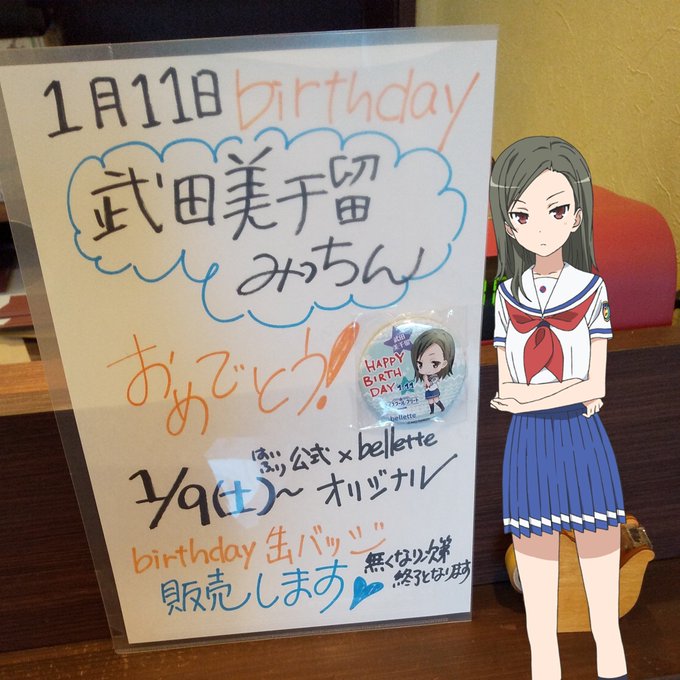 1月11日 birthday
武田美千留
みっちん
おめでとう!
武田
美千留
HAPPY
BIRTH
DAY 1.11
bellette
はいふり 公式 × bellette
1/9(土)~ オリジナル
birthday 缶バッジ
販売します
無くなり次第
終了となります